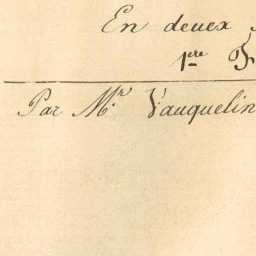 En deuex
1ère
Par Mr. Vauquelin